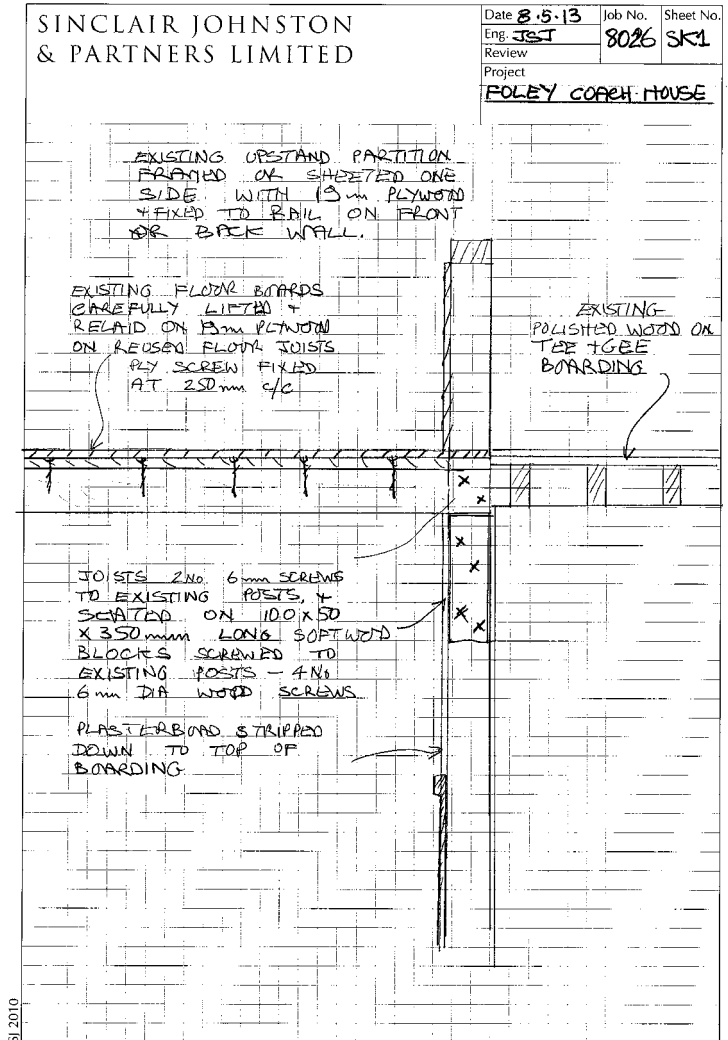 SINCLAIR JOHNSTON
& PARTNERS LIMITED
Date 8.5.13
Job No.
Sheet No.
Eng. JSJ
8026
SK1
Review
Project
FOLEY COACH HOUSE
EXISTING UPSTAND PARTITION
FRAMED OR SHEETED ONE
SIDE WITH 19mm PLYWOOD
+ FIXED TO RAIL ON FRONT
OR BACK WALL.
EXISTING FLOOR BOARDS
CAREFULLY LIFTED +
RELAID ON 19mm PLYWOOD
ON REUSED FLOOR JOISTS
PLY SCREW FIXED
AT 250mm c/c
EXISTING
POLISHED WOOD ON
TEE + GEE
BOARDING
JOISTS 2No 6mm SCREWS
TO EXISTING POSTS, +
SEATED ON 100 x 50
x 350mm LONG SOFTWOOD
BLOCKS SCREWED TO
EXISTING POSTS - 4No
6mm DIA WOOD SCREWS
PLASTERBOARD STRIPPED
DOWN TO TOP OF
BOARDING
SJ 2010